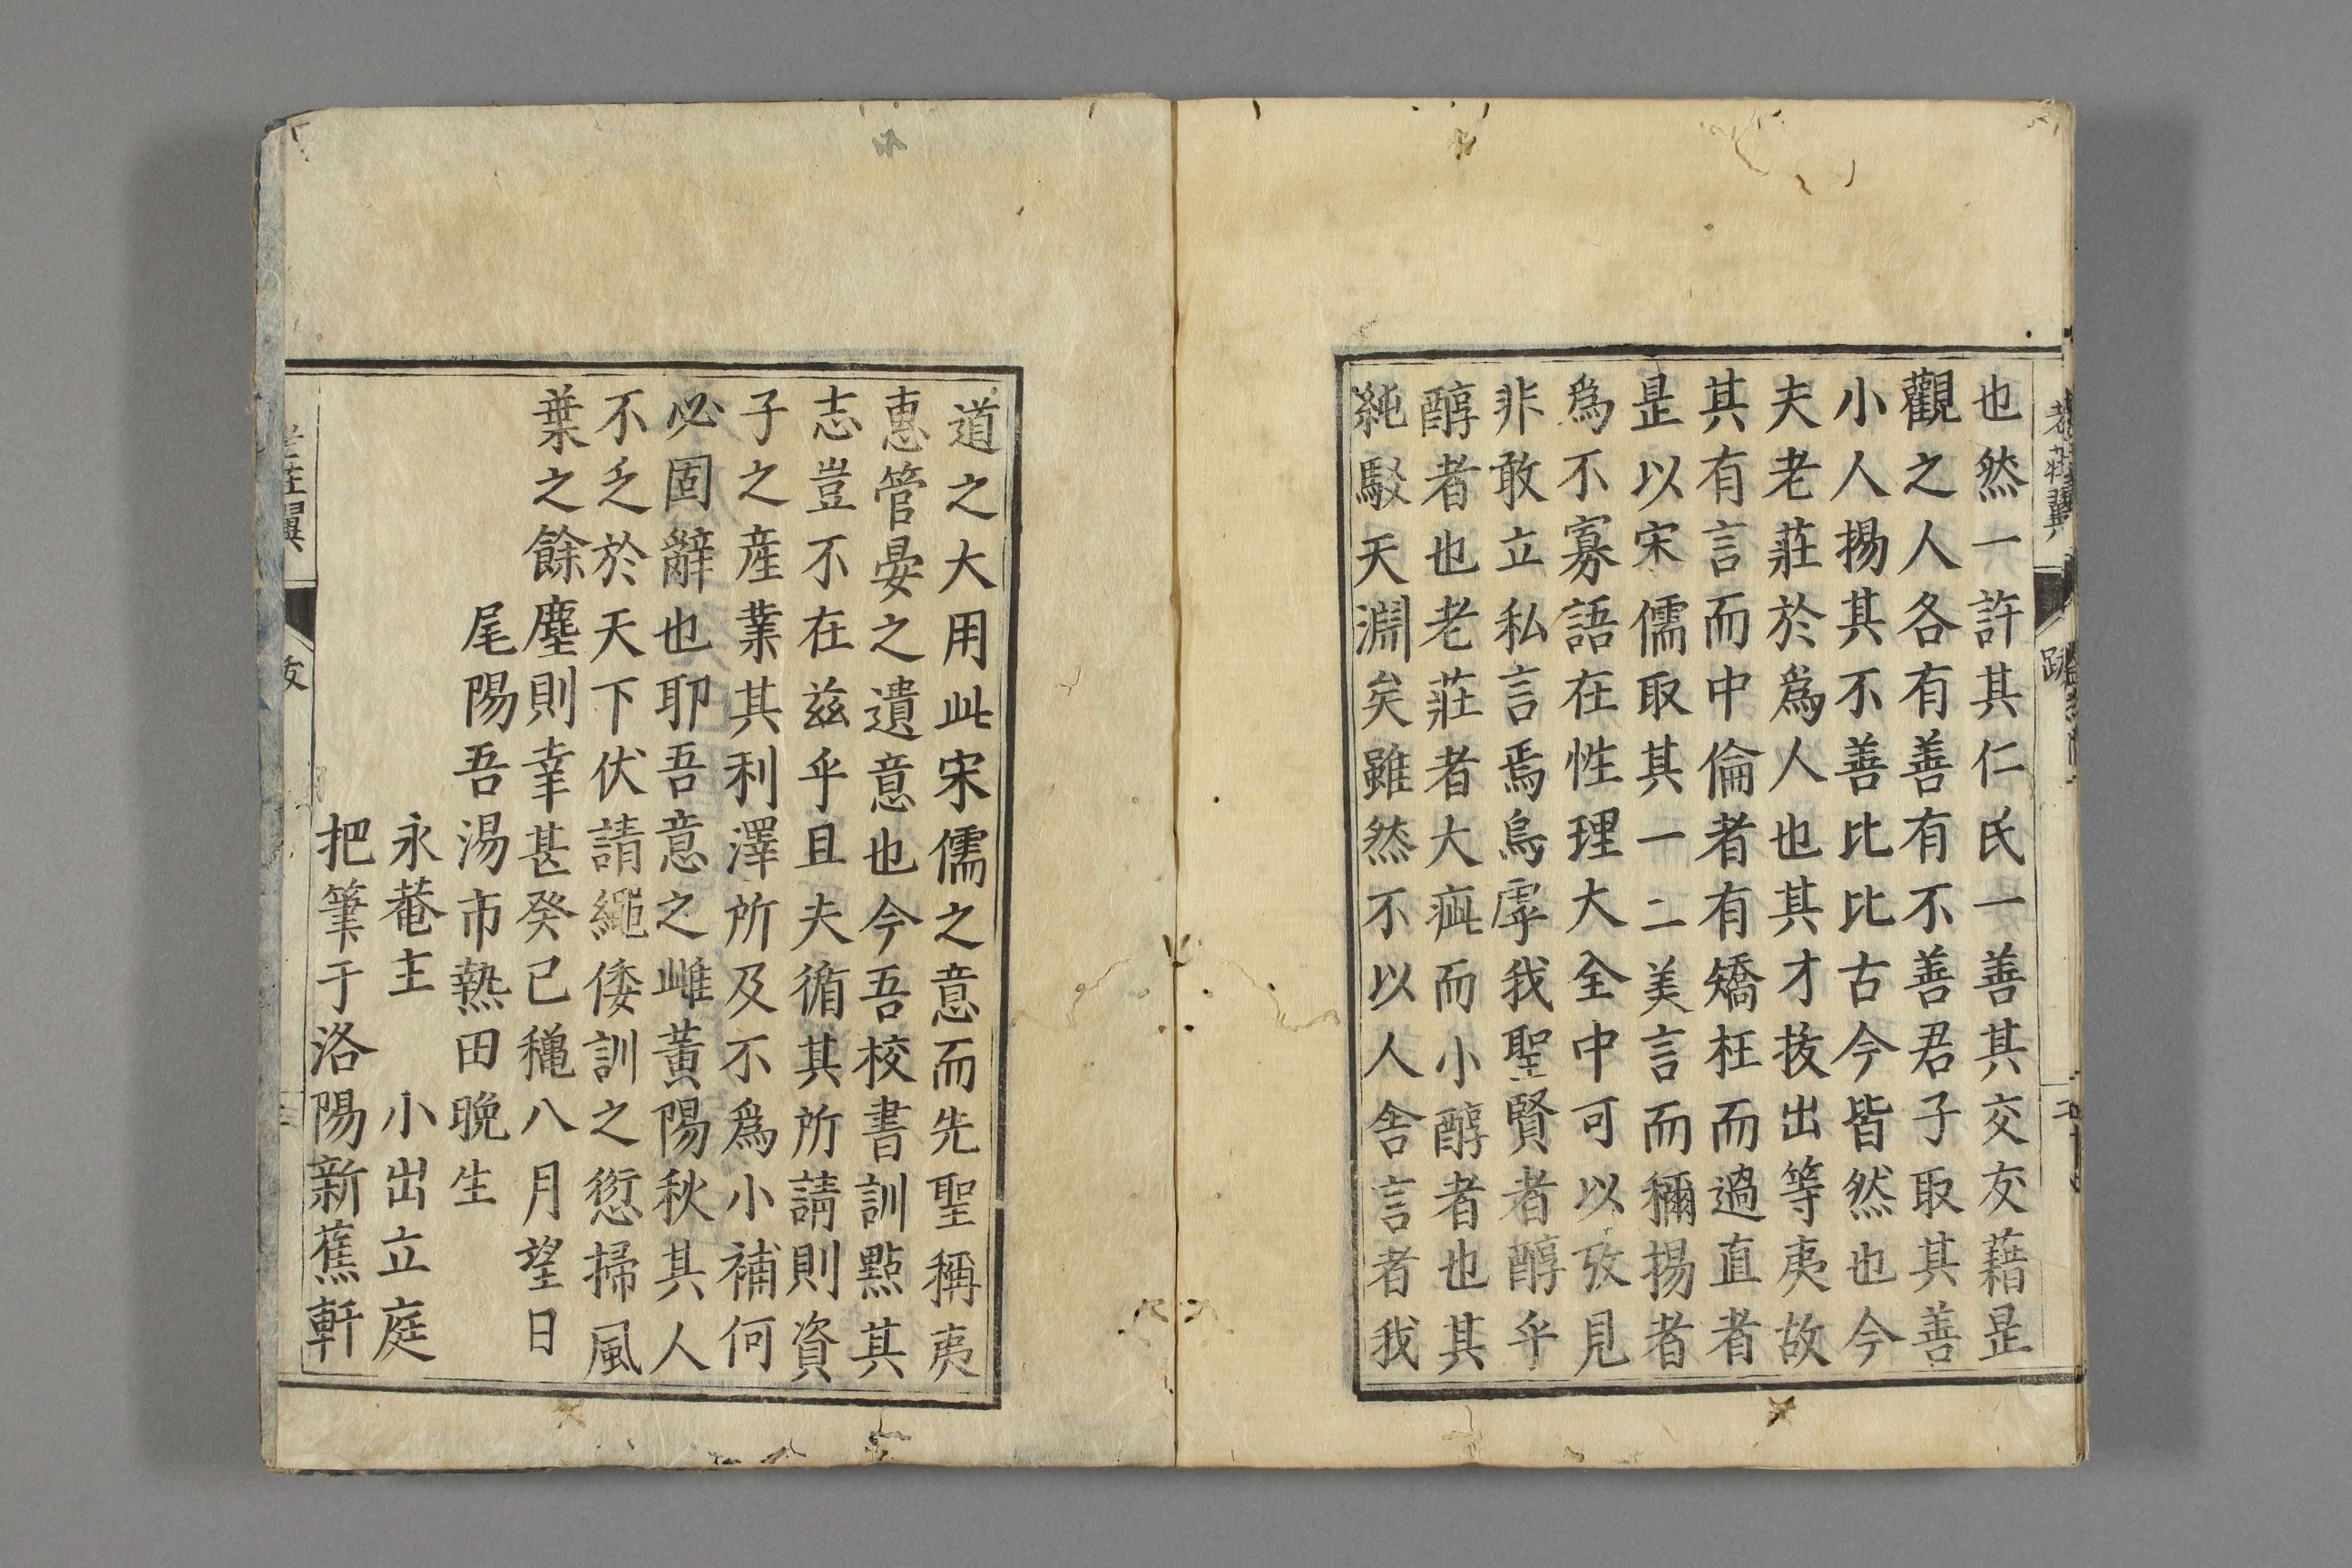 也然一許其仁氏一善其交友藉是
觀之人各有善有不善君子取其善
小人揚其不善比比古今皆然也今
夫老莊於爲人也其才抜出等夷故
其有言而中倫者有矯枉而過直者
是以宋儒取其一二美言而彌揚者
爲不寡語在性理大全中可以攷見
非敢立私言焉烏虖我聖賢者醇乎
醇者也老莊者大疵而小醇者也其
純駁天淵矣雖然不以人舎言者我
老莊翼
跋
二
道之大用此宋儒之意而先聖稱夷
惠管晏之遺意也今吾校書訓點其
志豈不在茲乎且夫循其所請則資
子之産業其利澤所及不爲小補何
必固辭也耶吾意之雌黄陽秋其人
不乏於天下伏請繩倭訓之愆掃風
葉之餘塵則幸甚癸已龝八月望日
尾陽吾湯市熱田晩生
永菴主　小出立庭
把筆于洛陽新蕉軒
老莊翼
跋